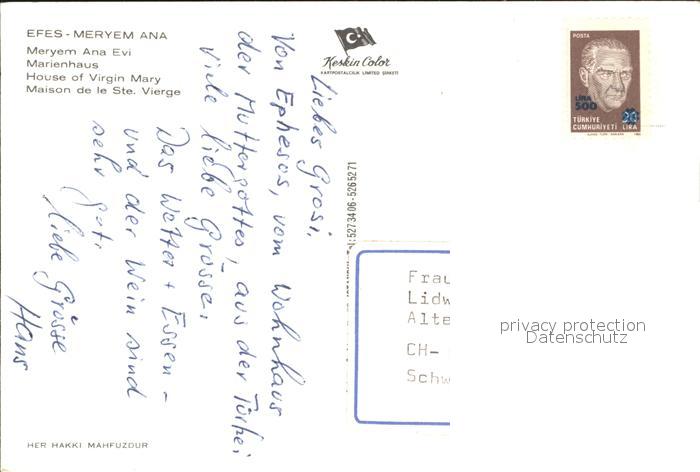 EFES - MERYEM ANA
Meryem Ana Evi
Marienhaus
House of Virgin Mary
Maison de le Ste. Vierge
Keskin Color
KARTPOSTALCILIK LIMITED ŞIRKETI
POSTA
LİRA
500
20
TÜRKİYE
CUMHURİYETİ LİRA
Liebes Grosi,
Von Ephesos, vom Wohnhaus
der Muttergottes, aus der Türkei
viele liebe Grüsse,
Das Wetter + Essen -
und der Wein sind
sehr gut,
liebe Grüsse
Hans
5273406-5265271
Frau
Lidw
Alte
CH-
Schw
privacy protection
Datenschutz
HER HAKKI MAHFUZDUR